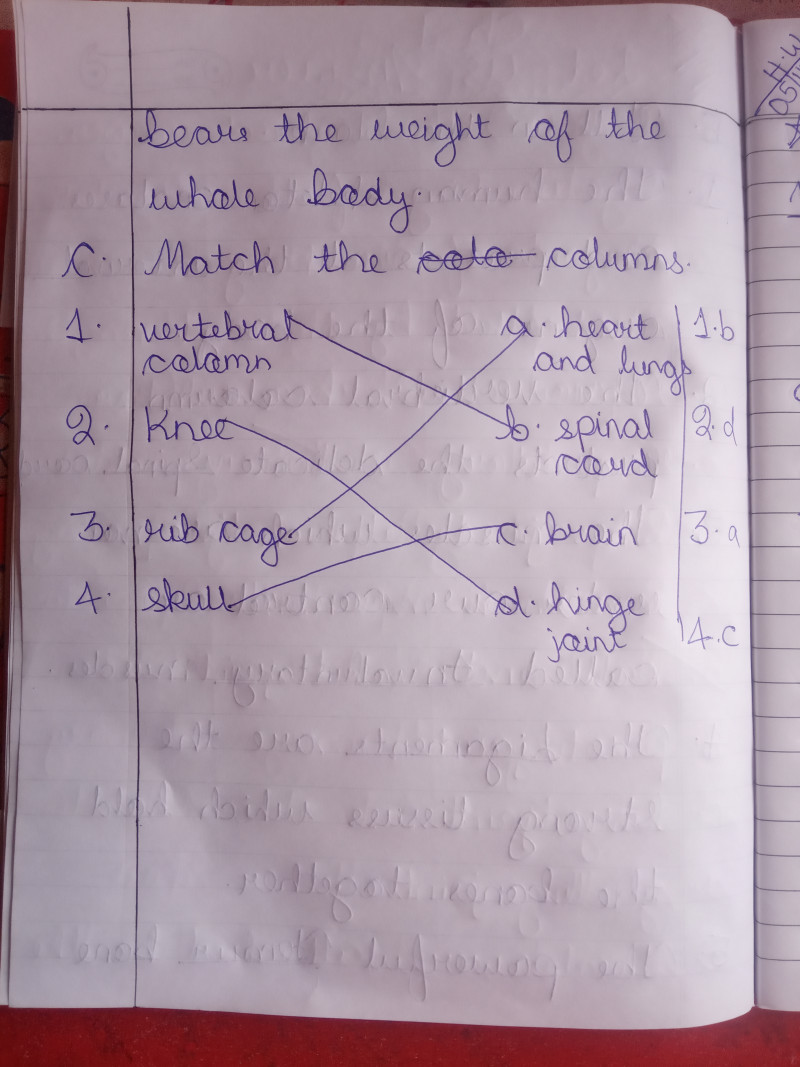 bears the weight of the
whole body.
C. Match the colo columns.
1. vertebral a. heart 1.b
colomn and lungs
2. Knee b. spinal 2.d
cord
3. rib cage c. brain 3.a
4. skull d. hinge
joint 4.c
H.W
05/11